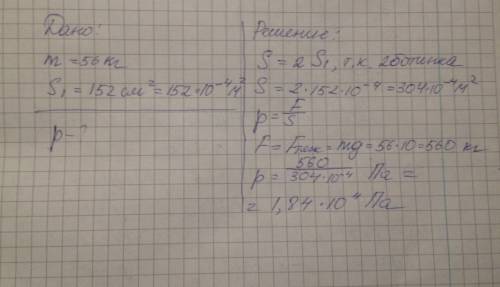 Дано:
m = 56 кг
S₁ = 152 см² = 152·10⁻⁴ м²
p - ?
Решение:
S = 2 S₁, т.к. 2 ботинка
S = 2·152·10⁻⁴ = 304·10⁻⁴ м²
p = F/S
F = Fтяж = mg = 56·10 = 560 кг
p = 560/304·10⁻⁴ Па =
= 1,84·10⁴ Па